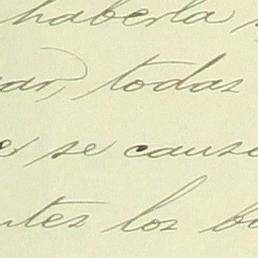 haberla
ar, todas
se caus
ntes los b